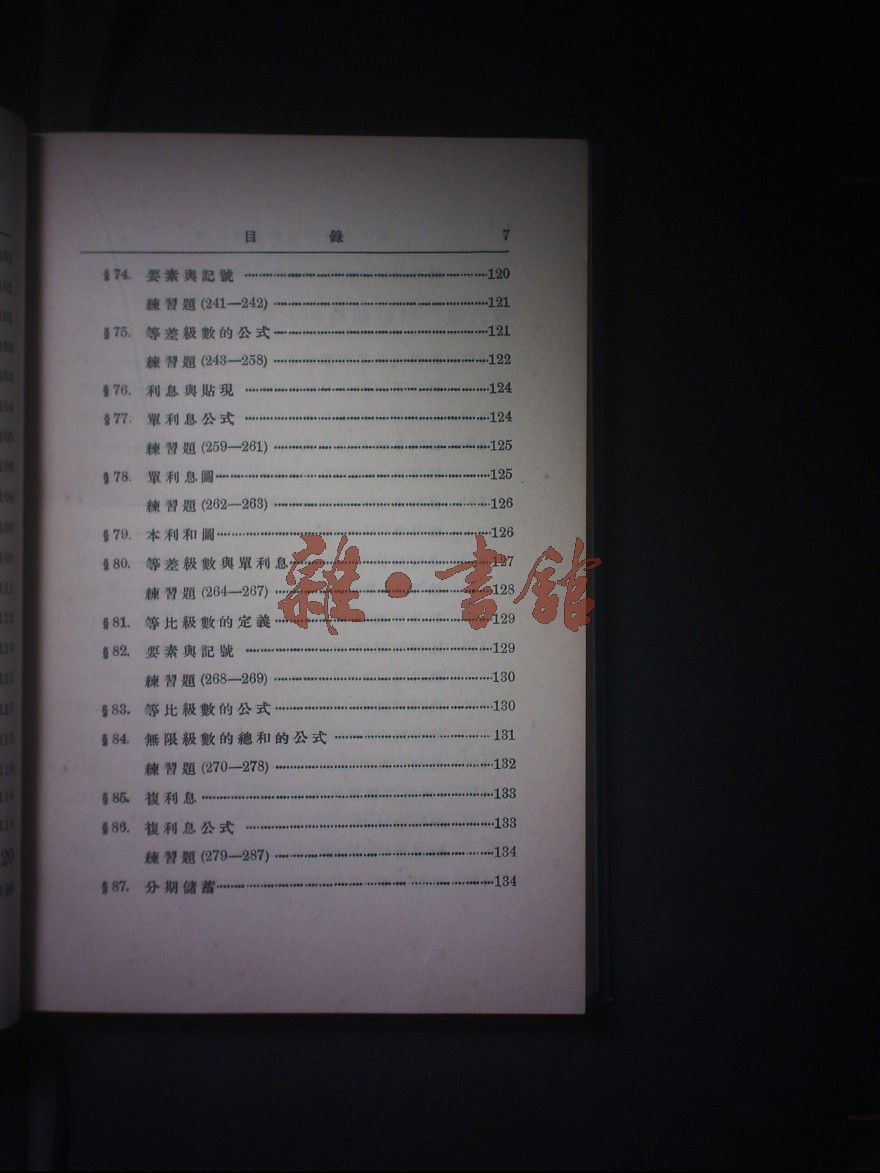 目 錄 7
§74. 要素與記號 ……120
練習題(241—242) ……121
§75. 等差級數的公式 ……121
練習題(243—258) ……122
§76. 利息與貼現 ……124
§77. 單利息公式 ……124
練習題(259—261) ……125
§78. 單利息圖……125
練習題(262—263) ……126
§79. 本利和圖……126
§80. 等差級數與單利息……127
練習題(264—267) ……128
§81. 等比級數的定義……129
§82. 要素與記號 ……129
練習題(268—269) ……130
§83. 等比級數的公式……130
§84. 無限級數的總和的公式 ……131
練習題(270—278) ……132
§85. 複利息……133
§86. 複利息公式 ……133
練習題(279—287) ……134
§87. 分期儲蓄……134
雜·書館